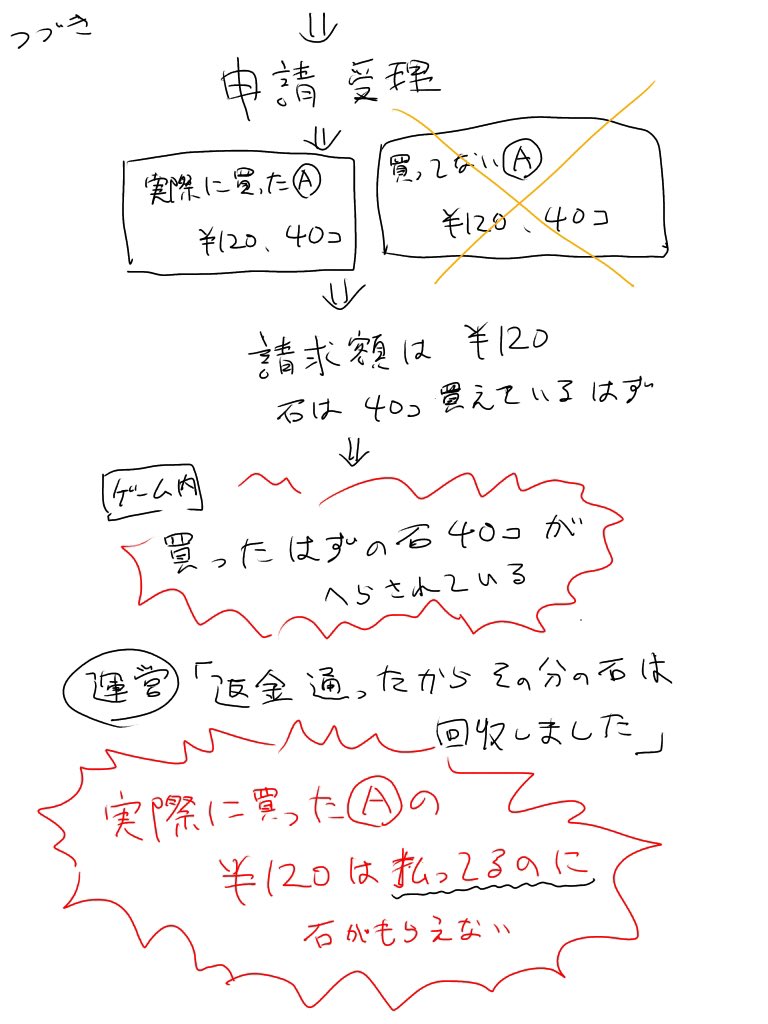 つづき
⇓
申請 受理
⇓
実際に買ったⒶ
¥120、40コ
買ってないⒶ
¥120、40コ
⇓
請求額は ¥120
石は 40コ 買えているはず
⇓
ゲーム内
買ったはずの石40コが
へらされている
運営「返金通ったからその分の石は
回収しました」
実際に買ったⒶの
¥120は払ってるのに
石がもらえない